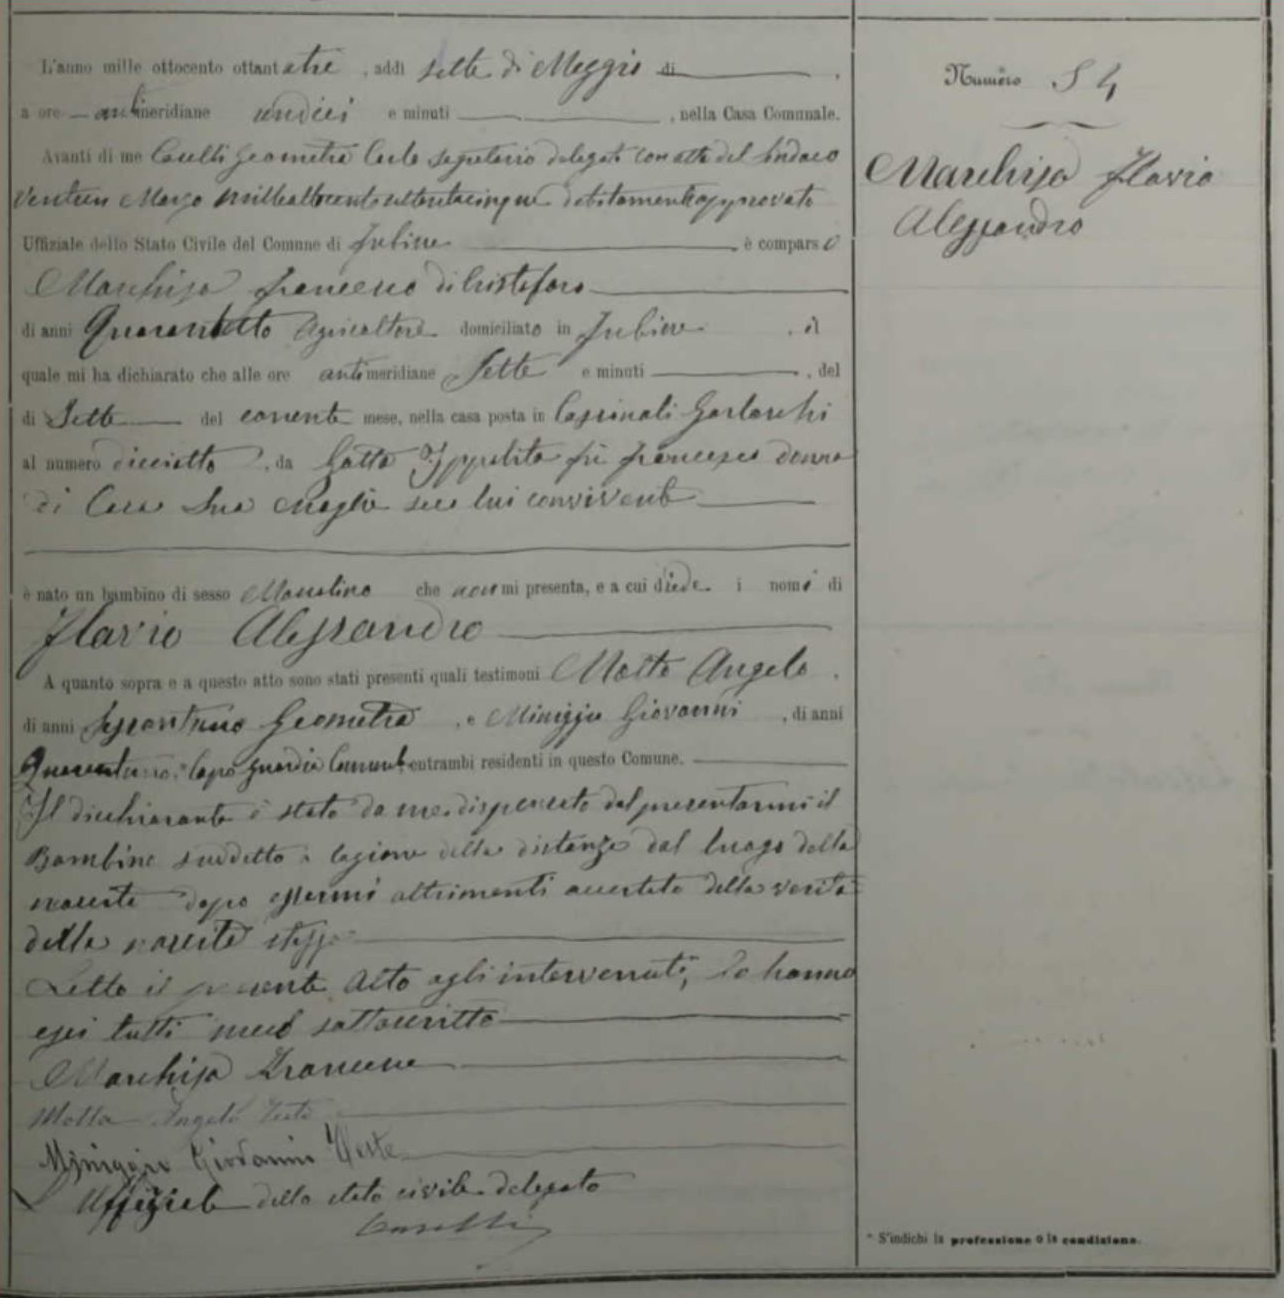 L'anno mille ottocento ottantatre, addì sette di Maggio di
a ore antimeridiane undici e minuti , nella Casa Comunale.
Avanti di me Caselli Geometra Carlo segretario delegato con atto del Sindaco
Ventisei Marzo milleottocentosettantacinque debitamente approvato
Uffiziale dello Stato Civile del Comune di Fubine , è comparso
Marchisio Francesco di Cristoforo
di anni Quarantotto Agricoltore domiciliato in Fubine , il
quale mi ha dichiarato che alle ore antimeridiane Sette e minuti , del
di Sette del corrente mese, nella casa posta in Cassinali Garlaschi
al numero dieciotto, da Gatto Ippolita fu Francesco donna
di Casa Sua Moglie seco lui convivente
è nato un bambino di sesso Mascolino che non mi presenta, e a cui diede i nomi di
Flavio Alessandro
A quanto sopra e a questo atto sono stati presenti quali testimoni Motta Angelo,
di anni Geometra, e Miniggio Giovanni, di anni
Quarantuno, Capo guardia Comunale entrambi residenti in questo Comune.
Il dichiarante è stato da me dispensato dal presentarmi il
Bambino suddetto a cagione della distanza dal luogo della
nascita dopo essermi altrimenti accertato della verità
della nascita stessa
Letto il presente Atto agli intervenuti, lo hanno
essi tutti meco sottoscritto
Marchisio Francesco
Motta Angelo Teste
Miniggio Giovanni Teste
L'Uffiziale dello stato civile delegato
Caselli
Numero 54
Marchisio Flavio
Alessandro
* S'indichi la professione o la condizione.